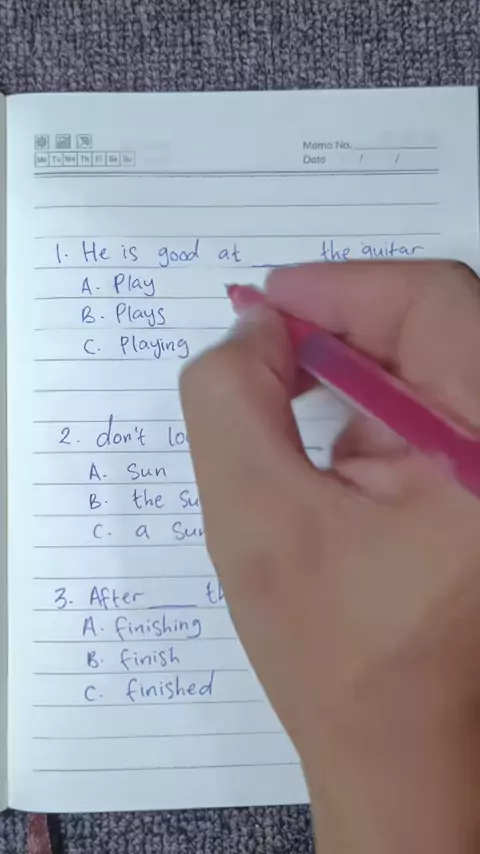 Memo No.
Mo Tu We Th Fr Sa Su
Date / /
1. He is good at ____ the guitar
A. Play
B. Plays
C. Playing
2. don't
A. Sun
B. the
C. a
3. After ____
A. finishing
B. finish
C. finished